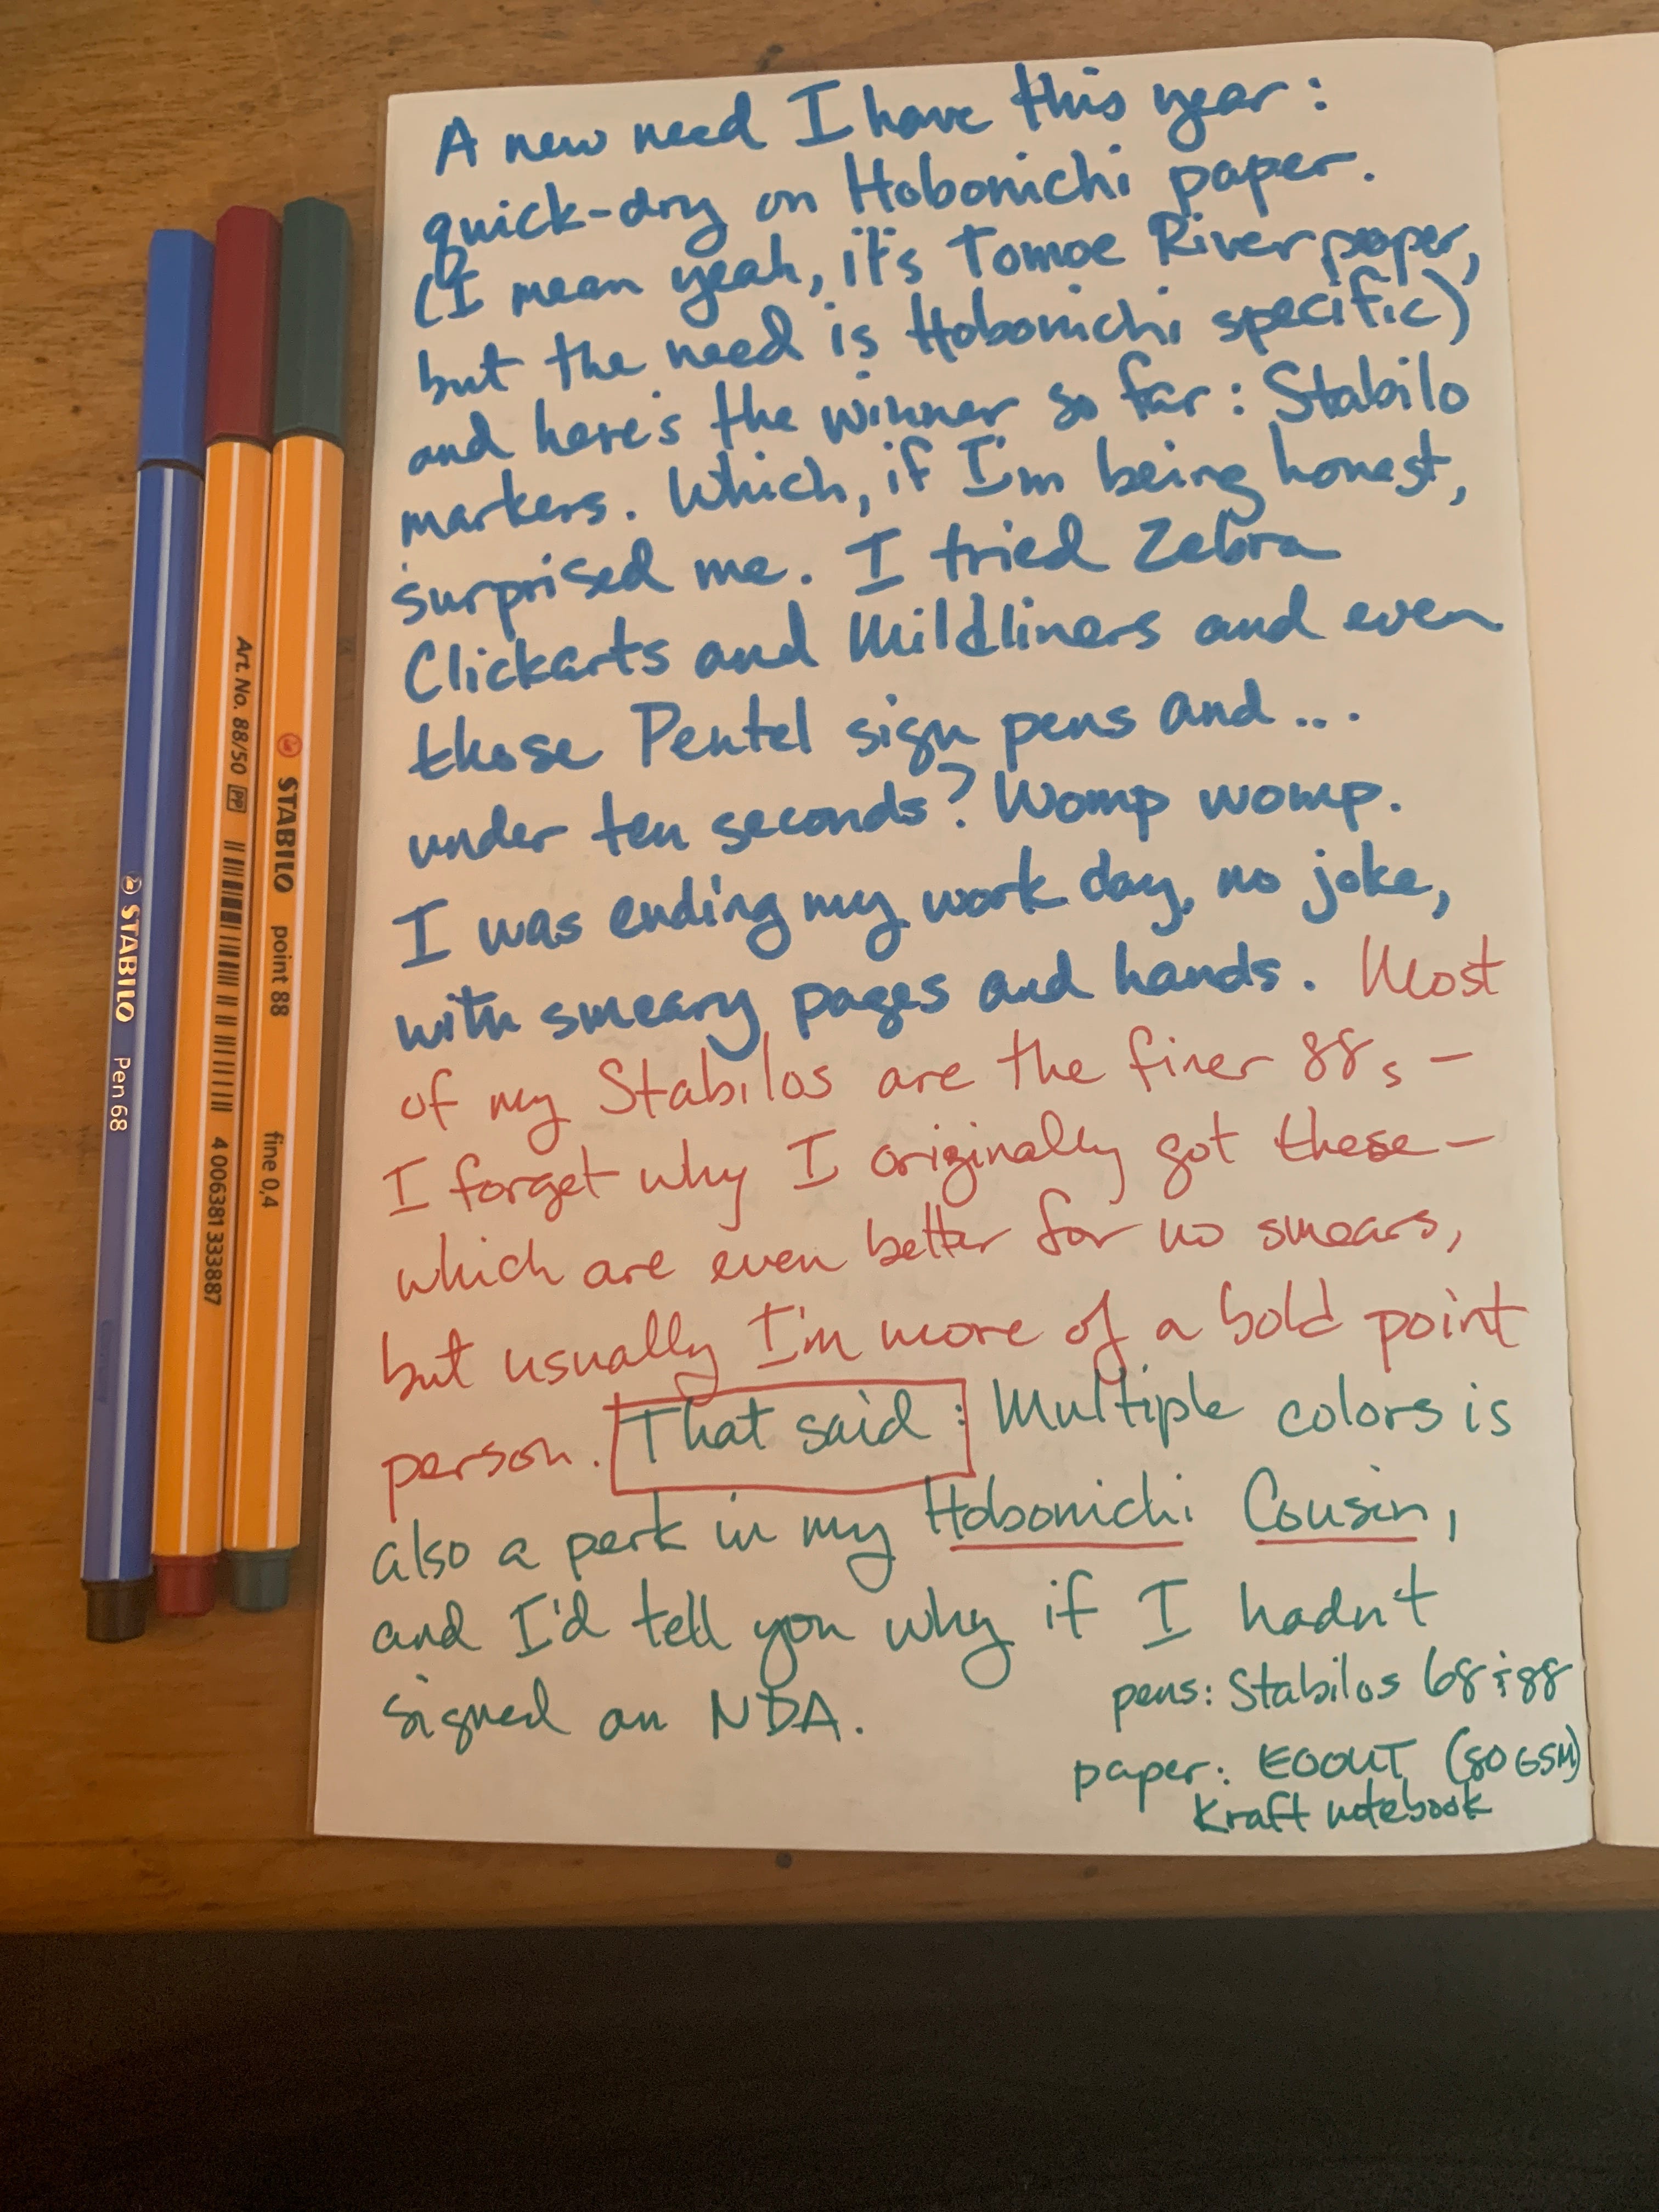 A new need I have this year:
quick-dry on Hobonichi paper.
(I mean yeah, it's Tomoe River paper,
but the need is Hobonichi specific)
and here's the winner so far: Stabilo
markers. Which, if I'm being honest,
surprised me. I tried Zebra
Clickarts and Mildliners and even
those Pentel sign pens and...
under ten seconds? Womp womp.
I was ending my work day, no joke,
with smeary pages and hands. Most
of my Stabilos are the finer 88s –
I forget why I originally got these –
which are even better for no smears,
but usually I'm more of a bold point
person. That said: Multiple colors is
also a perk in my Hobonichi Cousin,
and I'd tell you why if I hadn't
signed an NDA.
pens: Stabilos 68 + 88
paper: EOOUT (80 GSM)
Kraft notebook
STABILO Pen 68
Art. No. 88/50 PP 4 006381 333887
STABILO point 88 fine 0,4